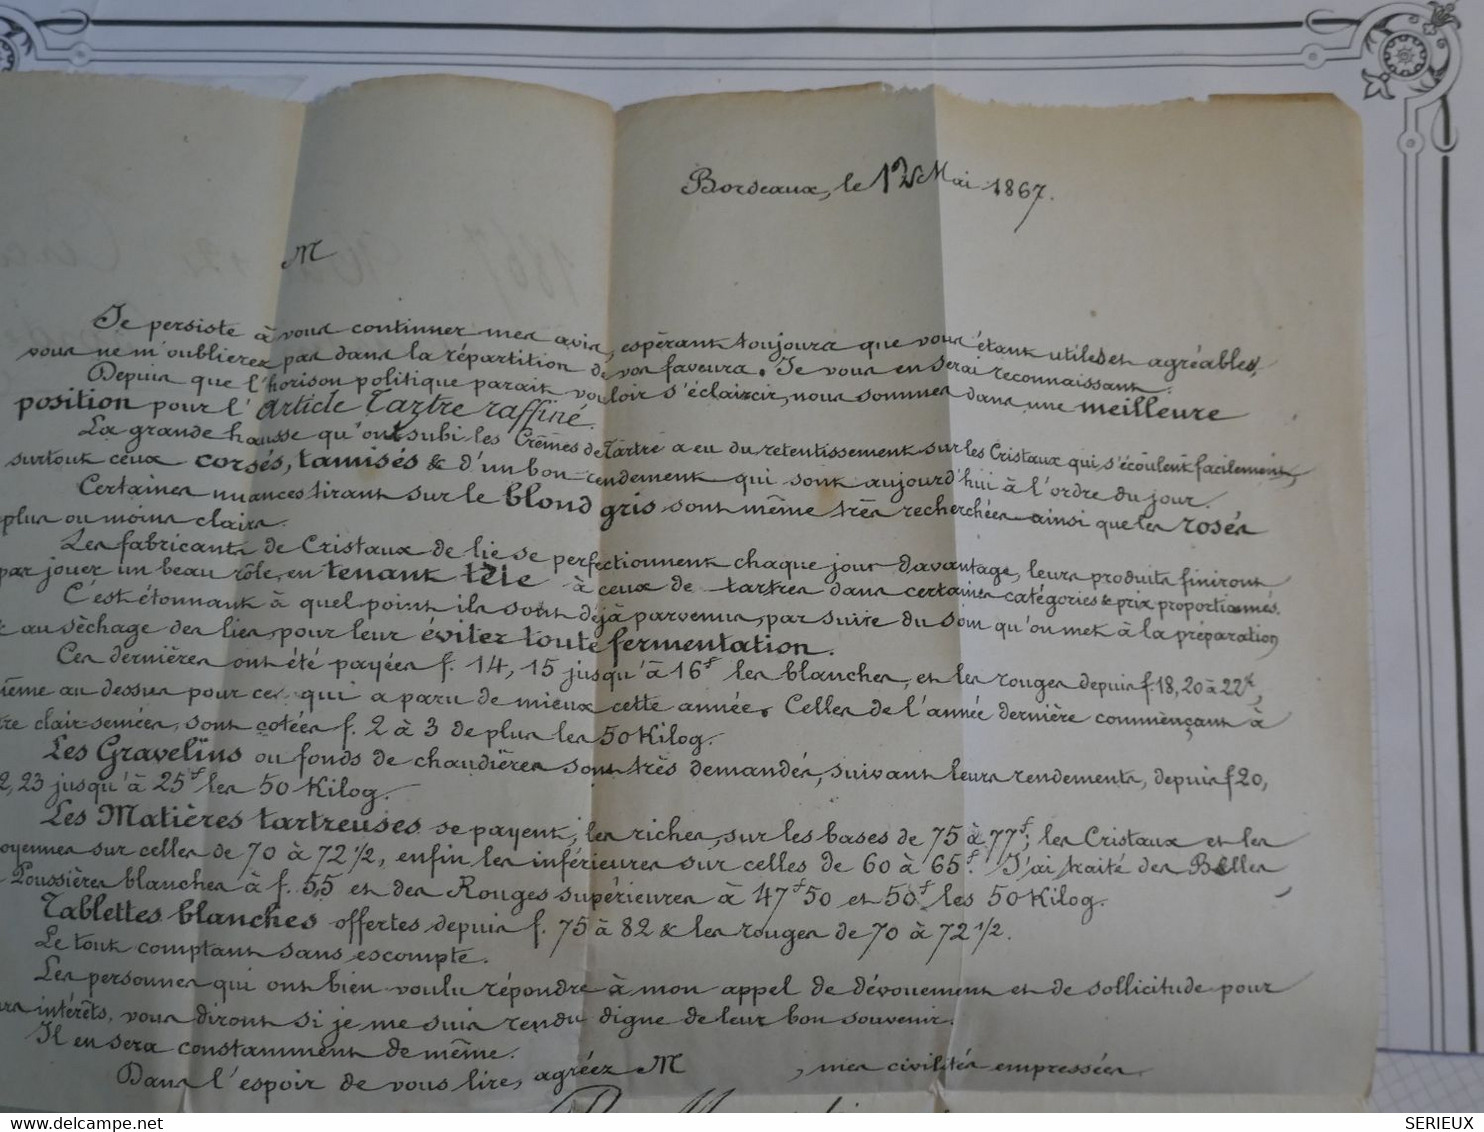 Bordeaux, le 12 Mai 1867.
M
Je persiste à vous continuer mes avis, espérant toujours que vous étant utiles et agréables,
vous ne m'oublierez pas dans la répartition de vos faveurs. Je vous en serai reconnaissant.
Depuis que l'horison politique parait vouloir s'éclaircir, nous sommes dans une meilleure
position pour l'article Tartre raffiné.
La grande hausse qu'ont subi les Crêmes de Tartre a eu du retentissement sur les Cristaux qui s'écoulent facilement,
surtout ceux corsés, tamisés & d'un bon rendement qui sont aujourd'hui à l'ordre du jour.
Certaines nuances tirant sur le blond gris sont même très recherchées ainsi que les rosés
plus ou moins clairs.
Les fabricants de Cristaux de lie se perfectionnent chaque jour davantage, leurs produits finiront
par jouer un beau rôle en tenant tête à ceux de tartres dans certaines catégories & prix proportionnés.
C'est étonnant à quel point ils sont déjà parvenus, par suite du soin qu'on met à la préparation
au sèchage des lies, pour leur éviter toute fermentation.
Ces dernières ont été payées f. 14, 15 jusqu'à 16f les blanches, et les rouges depuis f. 18, 20 à 22f,
même au dessus pour ce qui a paru de mieux cette année. Celles de l'année dernière commençant à
être clair-semées, sont cotées f. 2 à 3 de plus les 50 Kilog.
Les Gravelins ou fonds de chaudières sont très demandés, suivant leurs rendements, depuis f 20,
2, 23 jusqu'à 25f les 50 Kilog.
Les Matières tartreuses se payent, les riches, sur les bases de 75 à 77f; les Cristaux et les
oyennes sur celles de 70 à 72 1/2, enfin les inférieures sur celles de 60 à 65f. J'ai traité des Belles
Poussières blanches à f. 55 et des Rouges supérieures à 47f50 et 50f les 50 Kilog.
Tablettes blanches offertes depuis f. 75 à 82 & les rouges de 70 à 72 1/2.
Le tout comptant sans escompte.
Les personnes qui ont bien voulu répondre à mon appel de dévouement et de sollicitude pour
urs intérêts, vous diront si je me suis rendu digne de leur bon souvenir.
Il en sera constamment de même.
Dans l'espoir de vous lire, agréez M , mes civilités empressées.
SERIEUX